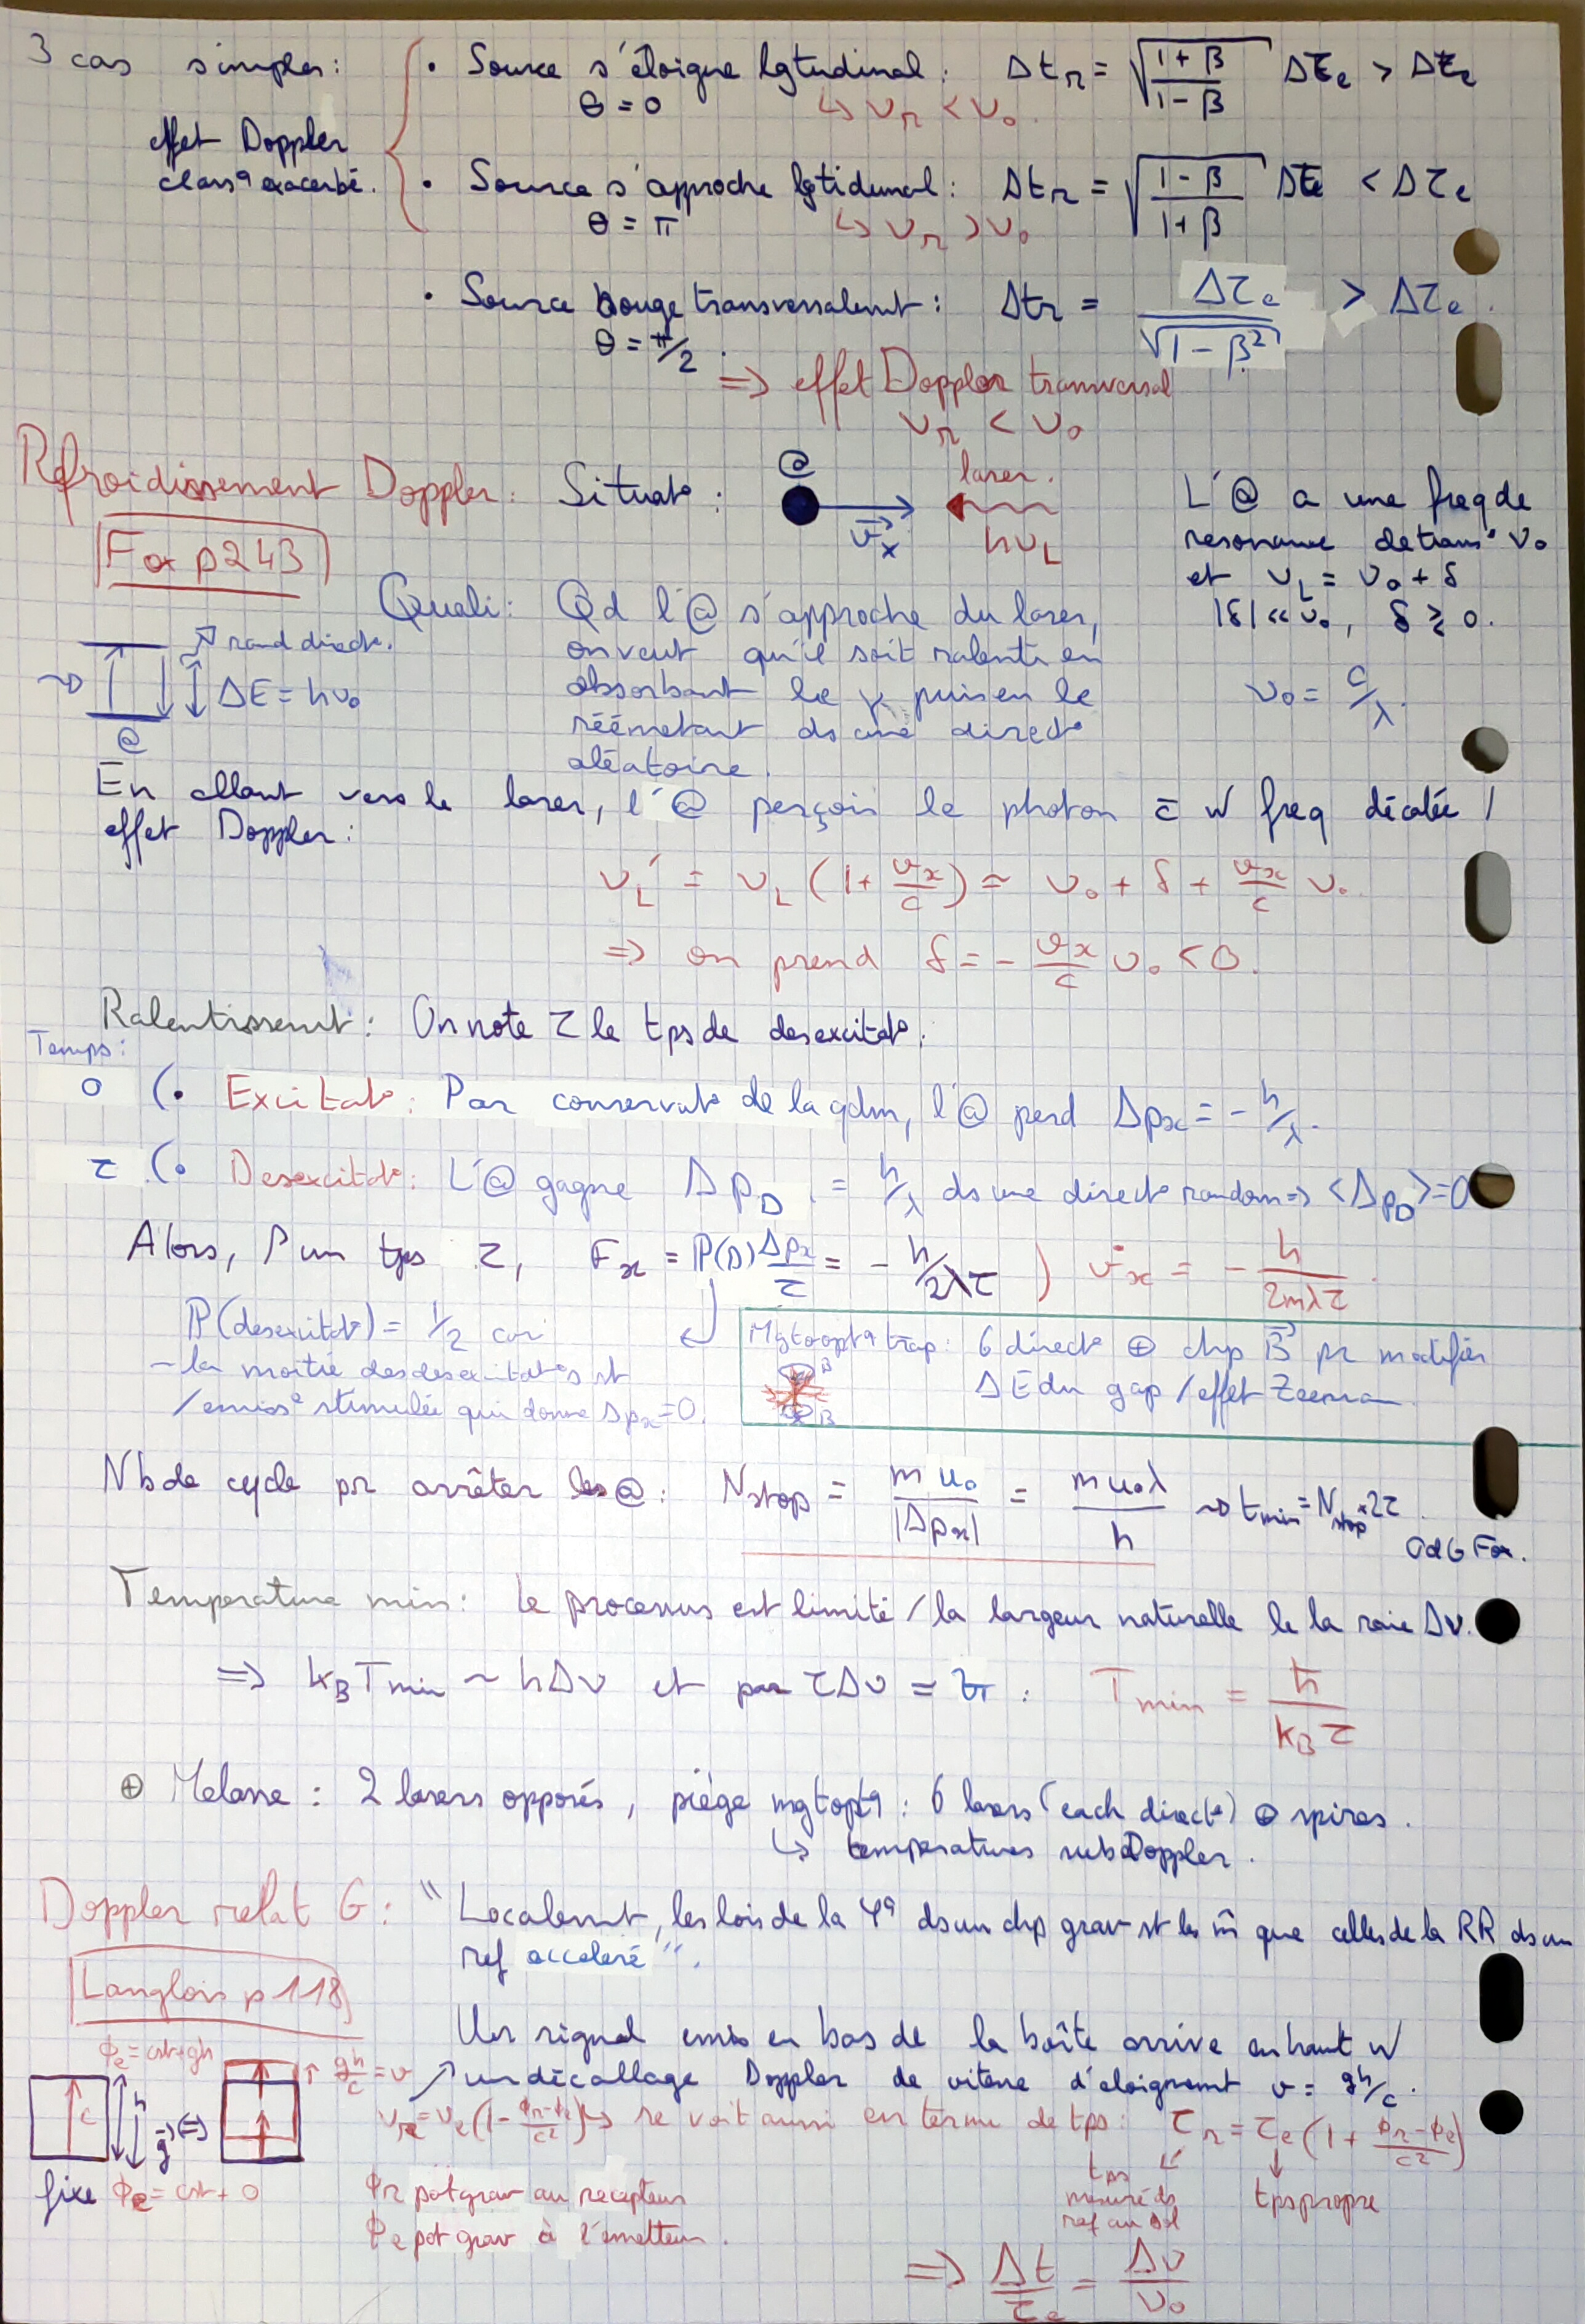 3 cas simples :
effet Doppler
class^q exacerbé.
• Source s'éloigne lgtudinal : Δt_r = √((1+β)/(1-β)) Δτ_e > Δτ_e
θ = 0 ↳ ν_r < ν_0.
• Source s'approche lgtidunal : Δt_r = √((1-β)/(1+β)) Δτ_e < Δτ_e
θ = π ↳ ν_r > ν_0
• Source bouge transversalemt : Δt_r = Δτ_e/√(1-β²) > Δτ_e.
θ = π/2.
⇒ effet Doppler transversal
ν_r < ν_0
Refroidissement Doppler :
Fox p 243
Situat° :
@
v⃗_x
laser.
hν_L
L'@ a une freq de
resonance de trans° ν_0
et ν_L = ν_0 + δ
|δ| << ν_0, δ ≷ 0.
ν_0 = c/λ.
Quali : Qd l'@ s'approche du laser,
on veut qu'il soit ralenti en
absorbant le γ puis en le
réémetant ds une direct°
aléatoire.
rand direct°.
ΔE = hν_0
@
En allant vers le laser, l'@ perçois le photon c̄ w freq décalée /
effet Doppler :
ν_L' = ν_L (1 + v_x/c) ≃ ν_0 + δ + v_x/c ν_0.
⇒ on prend δ = - v_x/c ν_0 < 0.
Ralentissemt : On note τ le tps de desexcitat°.
Temps :
0 (• Excitat° : Par conservat° de la qdm, l'@ perd Δp_x = - h/λ.
τ (• Desexcitat° : L'@ gagne Δp_D = h/λ ds une direct° random ⇒ <Δp_D> = 0
Alors, / un tps τ, F_x = P(D) Δp_x/τ = - h/2λτ ) v̇_x = - h/2mλτ.
P(desexcitat°) = 1/2 car
- la moitié des desexcitat°s st
/ emiss° stimulée qui donne Δp_x = 0.
Mgtoopt^q trap : 6 direct° ⊕ chp B⃗ pr modifier
ΔE du gap / effet Zeeman
B
B
Nb de cycle pr arrêter les @ : N_stop = m u_0/|Δp_x| = m u_0 λ/h ⇝ t_min = N_stop × 2τ
OdG Fox.
Temperature min : Le processus est limité / la largeur naturelle le la raie Δν.
⇒ k_B T_min ~ hΔν et par τΔν = 1/2π : T_min = ħ/(k_B τ)
⊕ Melasse : 2 lasers opposés, piège mgtopt^q : 6 lasers (each direct°) ⊕ spires.
↳ temperatures subDoppler.
Doppler relat G :
Langlois p 118
"Localemt, les lois de la φ^q ds un chp grav st les m̂ que celles de la RR ds un
ref acceleré".
Un signal emis en bas de la boîte arrive en haut w
un décallage Doppler de vitesse d'éloignemt v = gh/c.
ν_r = ν_e (1 - (φ_r - φ_e)/c²) ↳ se voit aussi en terme de tps : τ_r = τ_e (1 + (φ_r - φ_e)/c²)
φ_e = cst + gh
↑ gh/c = v
c
h
g⃗
(⇔)
fixe φ_e = cst + 0
φ_r pot grav au recepteur
φ_e pot grav à l'emetteur.
tps
mesuré ds
ref au sol
tps propre
⇒ Δt/τ_e = Δν/ν_0